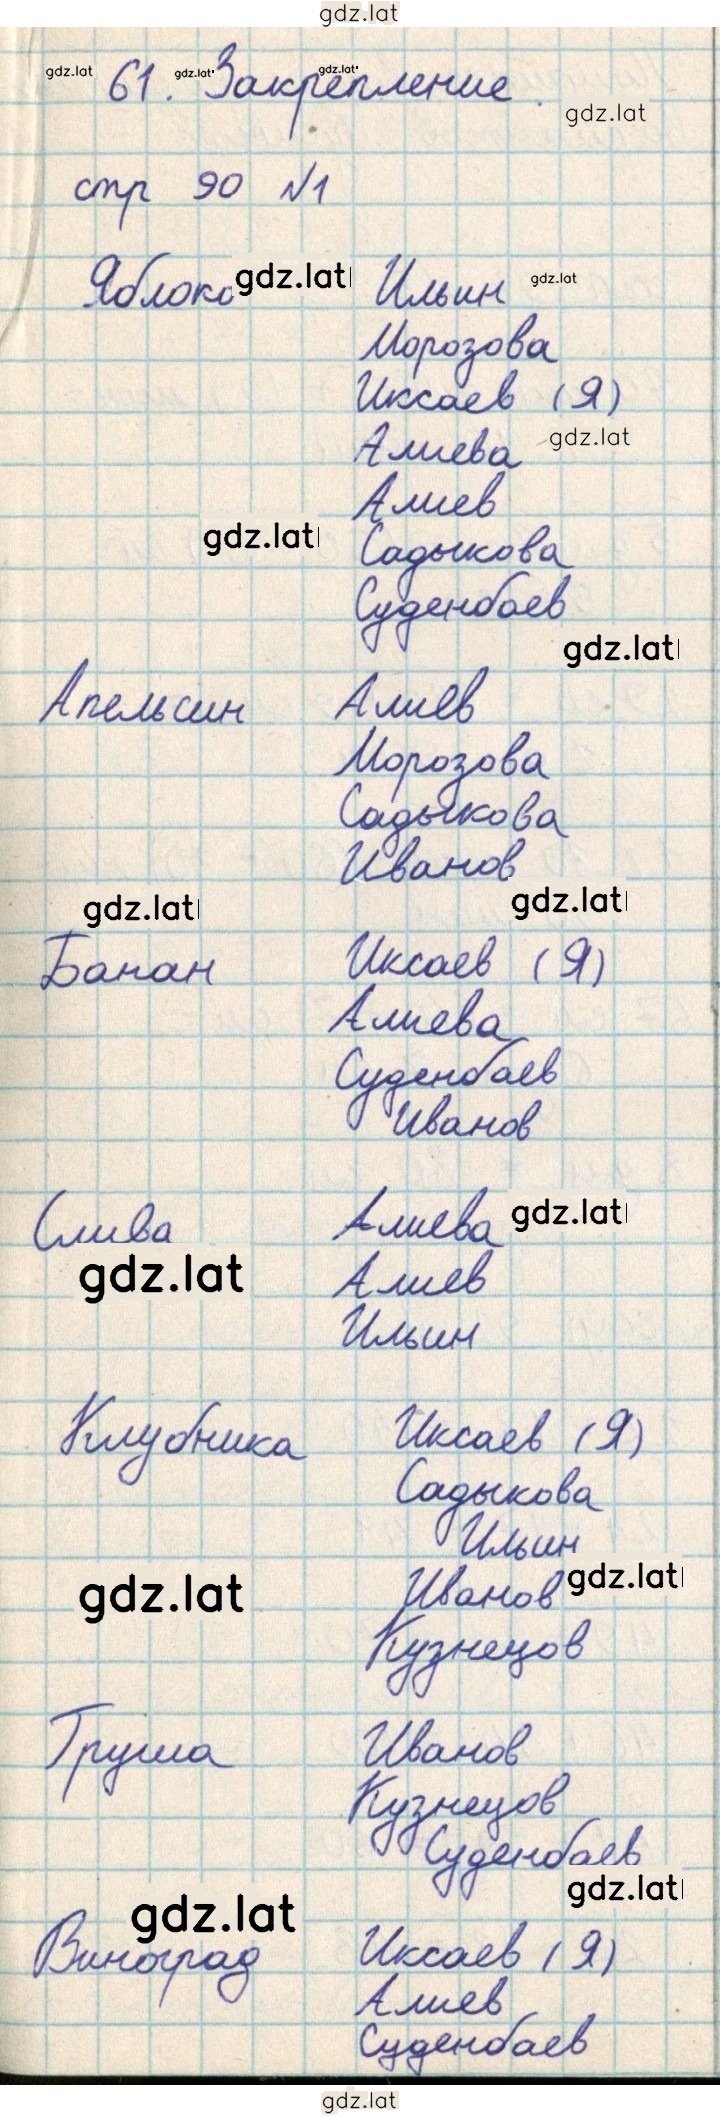 gdz.lat
gdz.lat 61. gdz.lat Закрепление gdz.lat
gdz.lat
стр 90 №1
Яблоко gdz.lat Ильин gdz.lat
Морозова
Иксаев (Я)
Алиева gdz.lat
Алиев
gdz.lat Садыкова
Суденбаев
gdz.lat
Апельсин Алиев
Морозова
Садыкова
Иванов
gdz.lat gdz.lat
Банан Иксаев (Я)
Алиева
Суденбаев
Иванов
Слива Алиева gdz.lat
gdz.lat Алиев
Ильин
Клубника Иксаев (Я)
Садыкова
Ильин
gdz.lat Иванов gdz.lat
Кузнецов
Груша Иванов
Кузнецов
Суденбаев
gdz.lat gdz.lat
Виноград Иксаев (Я)
Алиев
Суденбаев
gdz.lat